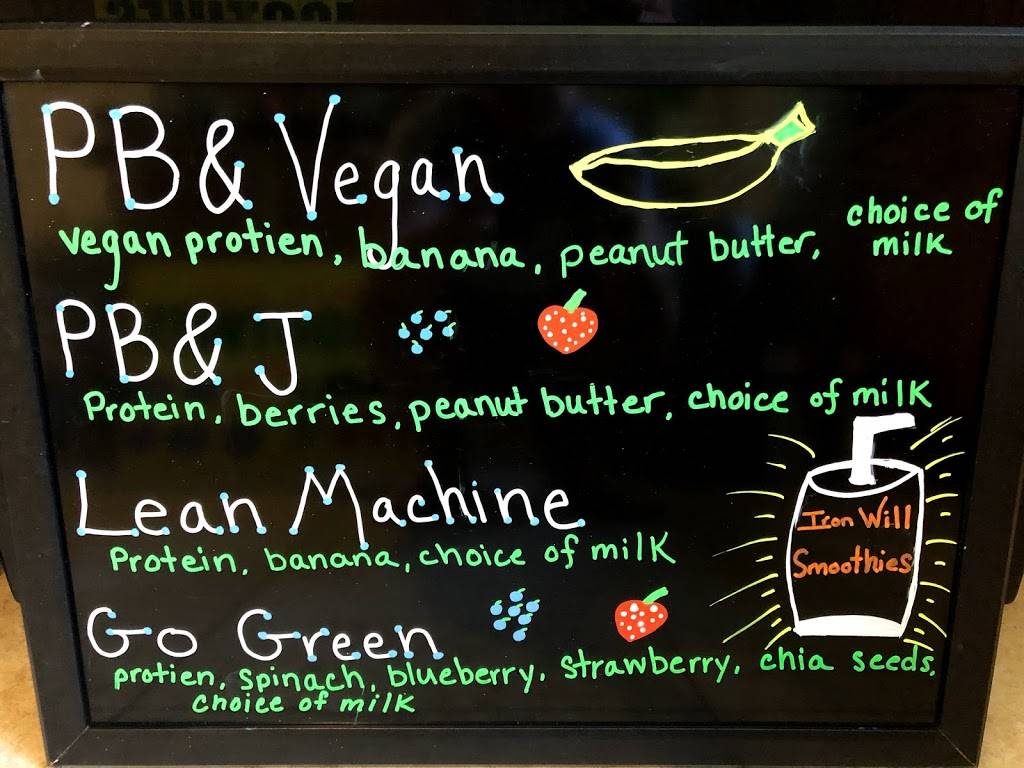 PB & Vegan
vegan protien, banana, peanut butter, choice of
milk
PB & J
Protein, berries, peanut butter, choice of milk
Lean Machine
Protein, banana, choice of milk
Iron Will
Smoothies
Go Green
protien, spinach, blueberry, strawberry, chia seeds,
choice of milk